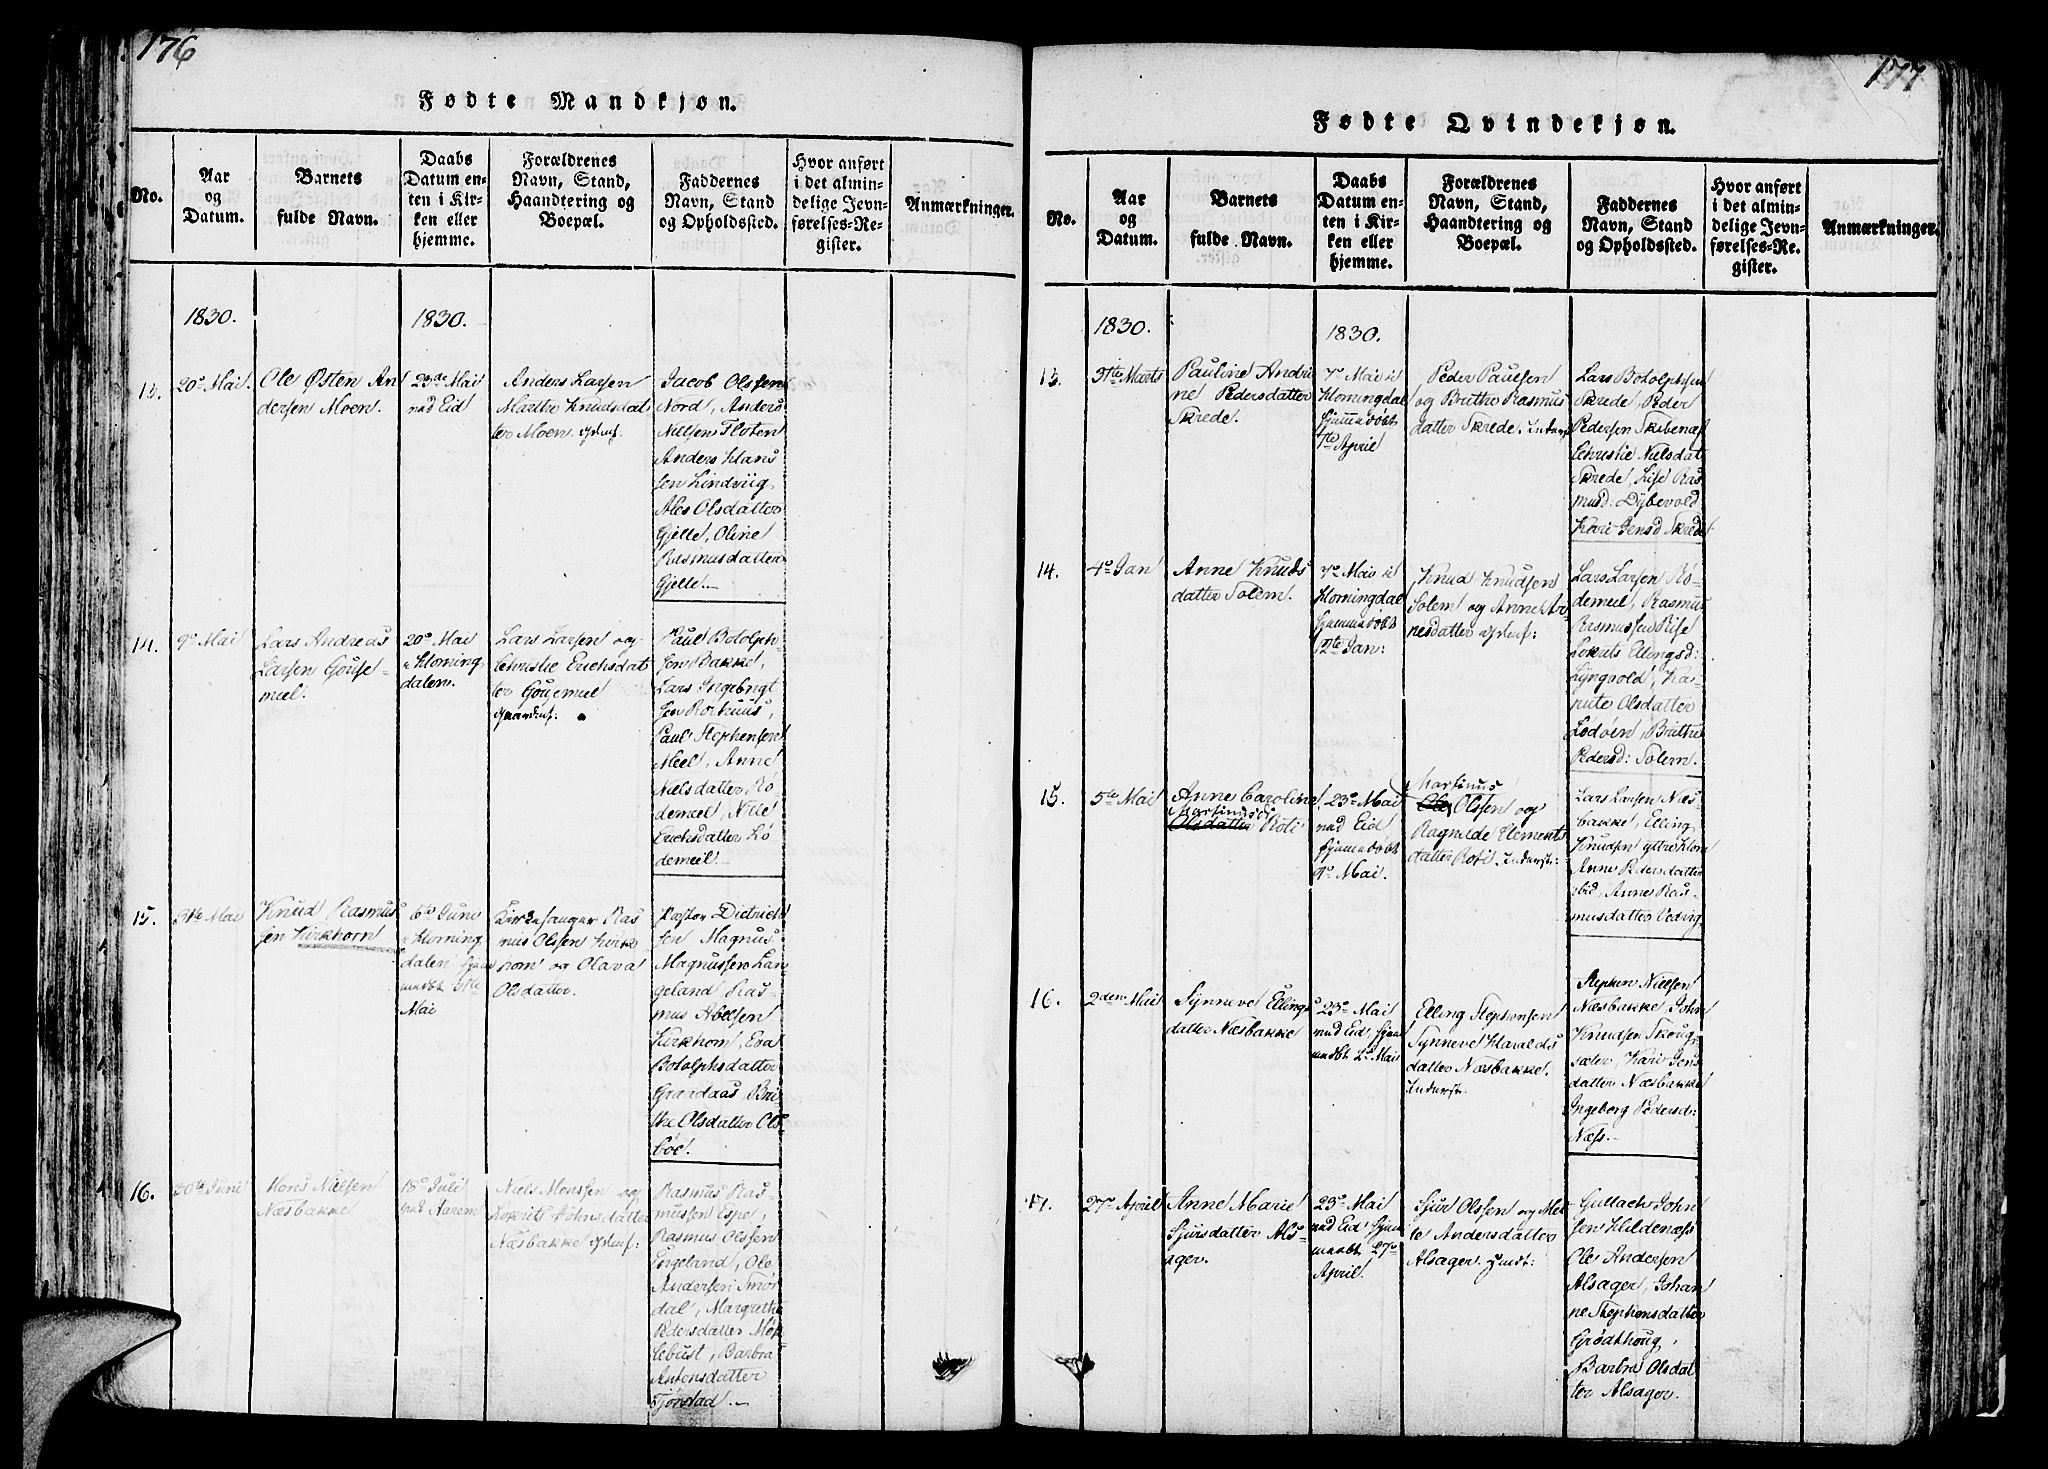 176
Fødte Mandkjøn.
No.
Aar
og
Datum.
Barnets
fulde Navn.
Daabs
Datum en-
ten i Kir-
ken eller
hjemme.
Forældrenes
Navn, Stand,
Haandtering og
Boepæl.
Faddernes
Navn, Stand
og Opholdssted.
Hvor anført
i det almin-
delige Jevn-
førelses-Re-
gister.
Anmærkninger.
1830.
1830.
13.
20de Mai
Ole Østen An
dersen Moen.
23de Mai
ved Eid
Anders Larsen
Marthe Knudsdat
ter Moen.
Jacob Olssen
Nord, Anders
Nielsen Floten
Anders Hans
sen Lindviig,
Ales Olsdatter
Gjelle, Oline
Rasmusdatter
Gjelle.
14.
9de Mai
Lars Andreas
Larsen Gouse-
meel.
20de Mai
i Horning
dalen.
Lars Larsen og
Christie Erichsdat
ter Gousemeel
Paul Botolph
sen Bakke,
Lars Ingebrigt
sen Rorhuus,
Paul Stephensen
Meel, Anne
Nielsdatter Rø-
demeel, Nille
Erichsdatter Rø
demeel.
15.
Mai
Knud Rasmus
sen Kirkhorn
6te Juni
i Horning
dalen hjem
Mai
Kirkesanger Ras
mus Olssen Kirk
horn og Olava
Olsdatter.
Pastor Dietrich
sen Magnus
Magnussen Lan-
geland Ras-
mus Abelsen
Kirkhorn, Eva
Botolphsdatter
Graadaas, Bri
the Olsdatter Ols
bøe.
16.
30te Juni
Mons Nielsen
Næsbakke
18de Juli
ved Aarem
Niels Monssen og
Zokrits Johnsdatter
Næsbakke
Rasmus Ras-
mussen Espe,
Rasmus Olssen
Engeland, Ole
Andersen Smør
dal, Margrethe
Pedersdatter Møk
lebust, Barbra
Antonsdatter
Tjørstad.
177
Fødte Qvindekjøn.
No.
Aar
og
Datum.
Barnets
fulde Navn.
Daabs
Datum en-
ten i Kir-
ken eller
hjemme.
Forældrenes
Navn, Stand,
Haandtering og
Boepæl.
Faddernes
Navn, Stand
og Opholdssted.
Hvor anført
i det almin-
delige Jevn-
førelses-Re-
gister.
Anmærkninger.
1830.
1830.
13.
31te Marts
Pauline Andri
ne Pedersdatter
Skrede.
7de Mai i
Horningdal
hjemmedøbt
April
Peder Paulsen
og Brithe Rasmus
datter Skrede. Inderst
Lars Botolphsen
Skrede, Peder
Pedersen Skibenæs
Christie Nielsdat
Skrede, Lise Ras
musd: Dybevold
Kari Jensd Skrede
14.
4de Jan
Anne Knuds
datter Solem.
7de Mai i
Horningdal
hjemmedøbt
12te Jan:
Knud Knudsen
Solem og Anne Ar
nesdatter
Lars Larsen Rø-
demeel, Rasmus
Rasmussen Rise
Lokrits Ellingsd:
Lyngvold, Kar-
nute Olsdatter
Lødøen, Brithe
Pedersd: Solem.
15.
5te Mai
Anne Caroline
Martinusd
Olsdatter Roti
23de Mai
ved Eid
hjemmedøbt
9de Mai.
Martinus
Ole Olssen og
Ragnilde Clements
datter Roti. Inderst:
Lars Larsen Næs
bakke, Elling
Knudsen yttre Horn
Anne Pedersdatter
ibid, Anne Ras-
musdatter Veding
16.
2den Mai
Synneve Ellings
datter Næsbakke
23de Mai
ved Eid, hjem
medøbt 2de Mai
Elling Stephensen
Synneve Haralds
datter Næsbakke.
Inderst.
Stephen Nielsen
Næsbakke, John
Knudsen Skoug
sæter, Kari Jens
datter Næsbakke
Ingeborg Pedersd:
Næss.
17.
27de April
Anne Marie
Sjursdatter Als
ager.
23de Mai
ved Eid hjem
medøbt 27de
April.
Sjur Olssen og Mal
le Andersdatter
Alsager.
Gullach John
sen Hildenæss
Ole Andersen
Alsager, Johan
ne Stephensdatter
Grødthoug,
Barbra Olsdat
ter Alsager.